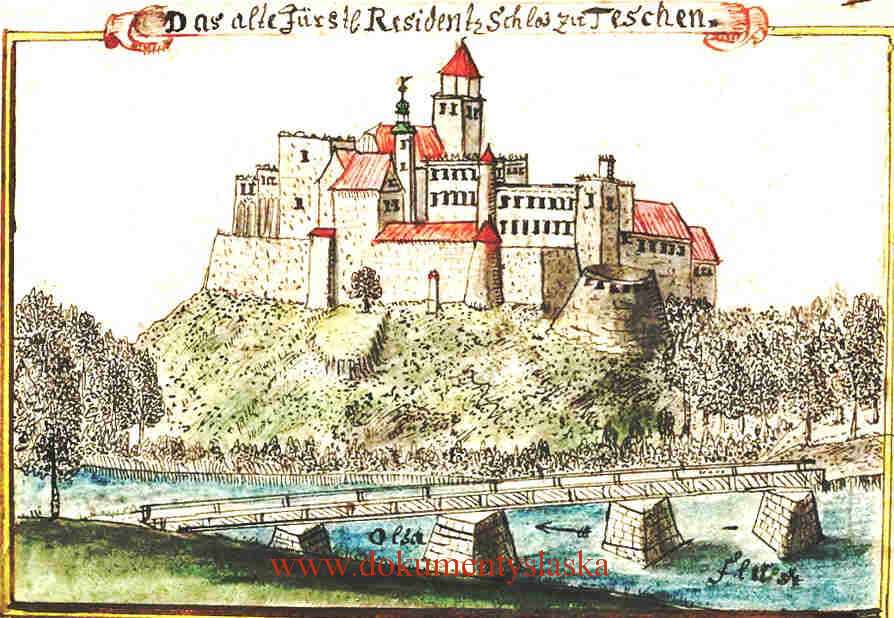 Das alte Fürstl Residentz Schlos zu Teschen.
Olsa
Fluss
www.dokumentyslaska